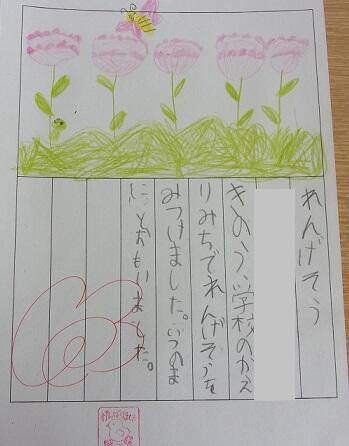 れんげそう
きのう、学校のかえ
りみちでれんげそうを
みつけました。いつのま
に、とおもいました。